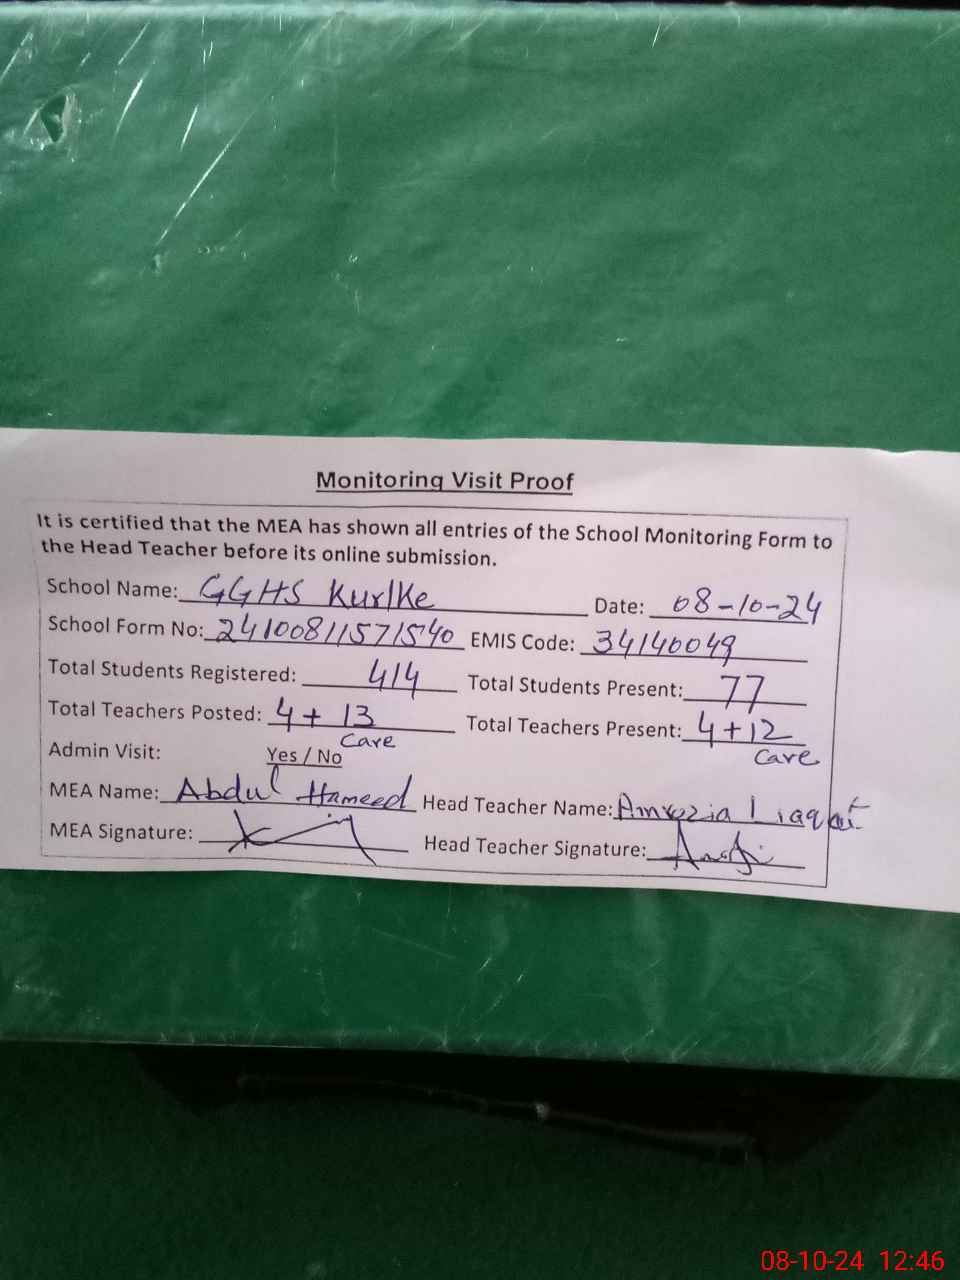 Monitoring Visit Proof
It is certified that the MEA has shown all entries of the School Monitoring Form to
the Head Teacher before its online submission.
School Name: GGHS Kurlke Date: 08-10-24
School Form No: 24100811571540 EMIS Code: 34140049
Total Students Registered: 414 Total Students Present: 77
Total Teachers Posted: 4 + 13 Care Total Teachers Present: 4+12 Care
Admin Visit: Yes / No
MEA Name: Abdul Hameed Head Teacher Name: Liaqat
MEA Signature: Head Teacher Signature:
08-10-24 12:46